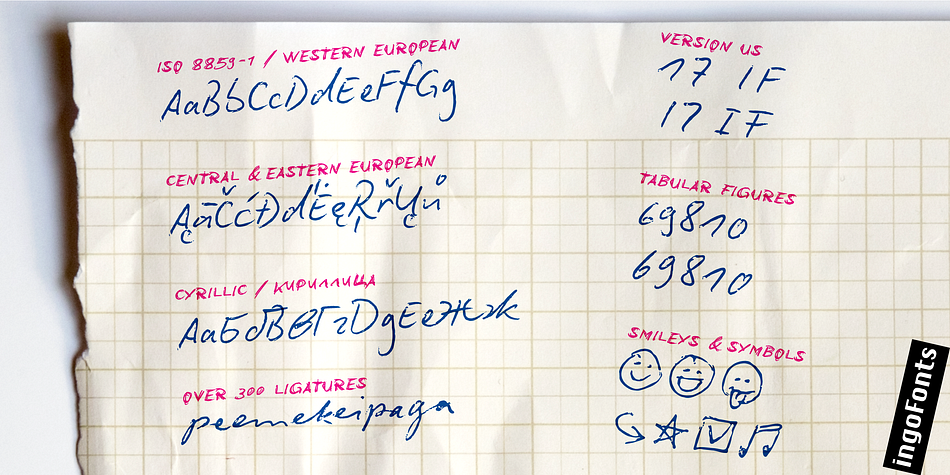 ISO 8859-1 / WESTERN EUROPEAN
AaBbCcDdEeFfGg
CENTRAL & EASTERN EUROPEAN
CYRILLIC / КИРИЛЛИЦА
АаБбВвГгДдЕеЖжк
OVER 300 LIGATURES
peemekeipaga
VERSION US
17 IF
17 IF
TABULAR FIGURES
69810
69810
SMILEYS & SYMBOLS
ingoFonts